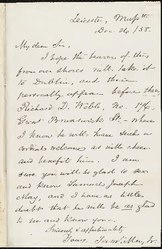 Leicester, Mass.
Dec. 26/58.
My dear Sir,
I hope the bearer of this
from our shores will take it
to Dublin, and then
personally appear before thee,
Richard D. Webb, No. 176
Great Brunswick St. - where
I know he will have such a
cordial welcome as will cheer
and benefit him. I am
sure you will be glad to see
and know Samuel Joseph
May, and I have as little
doubt that he will be as glad
to see and know you.
Yours,